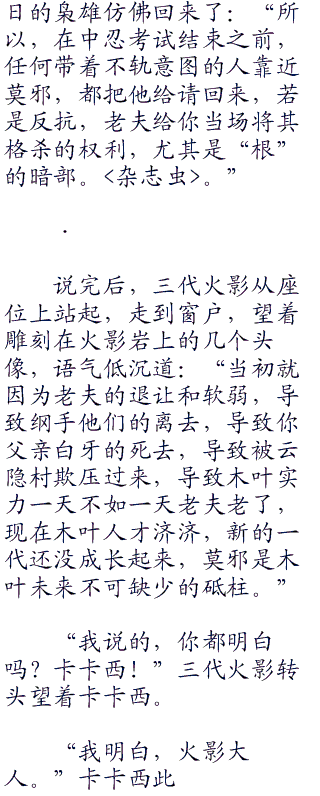 日的枭雄仿佛回来了：“所
以，在中忍考试结束之前，
任何带着不轨意图的人靠近
莫邪，都把他给请回来，若
是反抗，老夫给你当场将其
格杀的权利，尤其是“根”
的暗部。<杂志虫>。”
．
说完后，三代火影从座
位上站起，走到窗户，望着
雕刻在火影岩上的几个头
像，语气低沉道：“当初就
因为老夫的退让和软弱，导
致纲手他们的离去，导致你
父亲白牙的死去，导致被云
隐村欺压过来，导致木叶实
力一天不如一天老夫老了，
现在木叶人才济济，新的一
代还没成长起来，莫邪是木
叶未来不可缺少的砥柱。”
“我说的，你都明白
吗？卡卡西！”三代火影转
头望着卡卡西。
“我明白，火影大
人。”卡卡西此